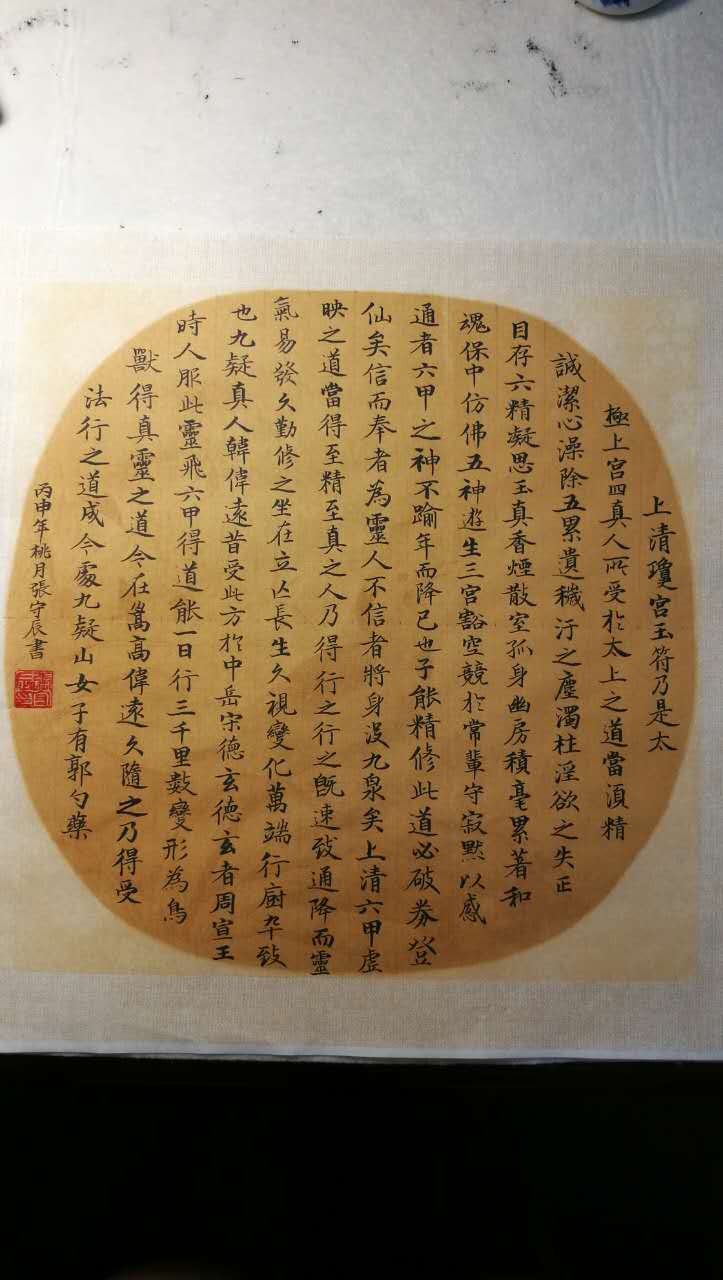 上清瓊宮玉符乃是太
極上宮四真人所受於太上之道當湏精
誠潔心澡除五累遺穢汙之塵濁杜淫欲之失正
目存六精凝思玉真香煙散室孤身幽房積毫累著和
魂保中仿佛五神遊生三宮豁空競於常輩守寂默以感
通者六甲之神不踰年而降已也子能精修此道必破券登
仙矣信而奉者為靈人不信者將身沒九泉矣上清六甲虛
映之道當得至精至真之人乃得行之行之既速致通降而靈
氣易發久勤修之坐在立亾長生久視變化萬端行廚卒致
也九疑真人韓偉遠昔受此方於中岳宋德玄德玄者周宣王
時人服此靈飛六甲得道能一日行三千里數變形為鳥
獸得真靈之道今在嵩高偉遠久隨之乃得受
法行之道成今處九疑山女子有郭勺藥
丙申年桃月張守辰書